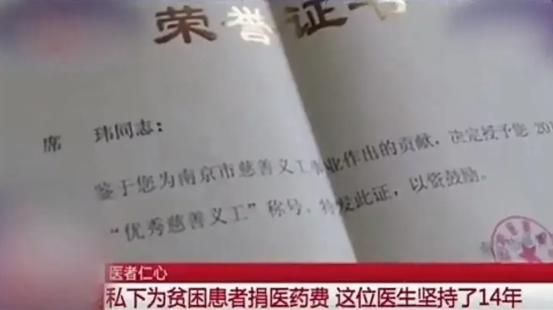 荣誉证书
席 玮同志：
鉴于您为南京市慈善义工事业作出的贡献，决定授予您 201
“优秀慈善义工”称号，特发此证，以资鼓励。
医者仁心
私下为贫困患者捐医药费 这位医生坚持了14年